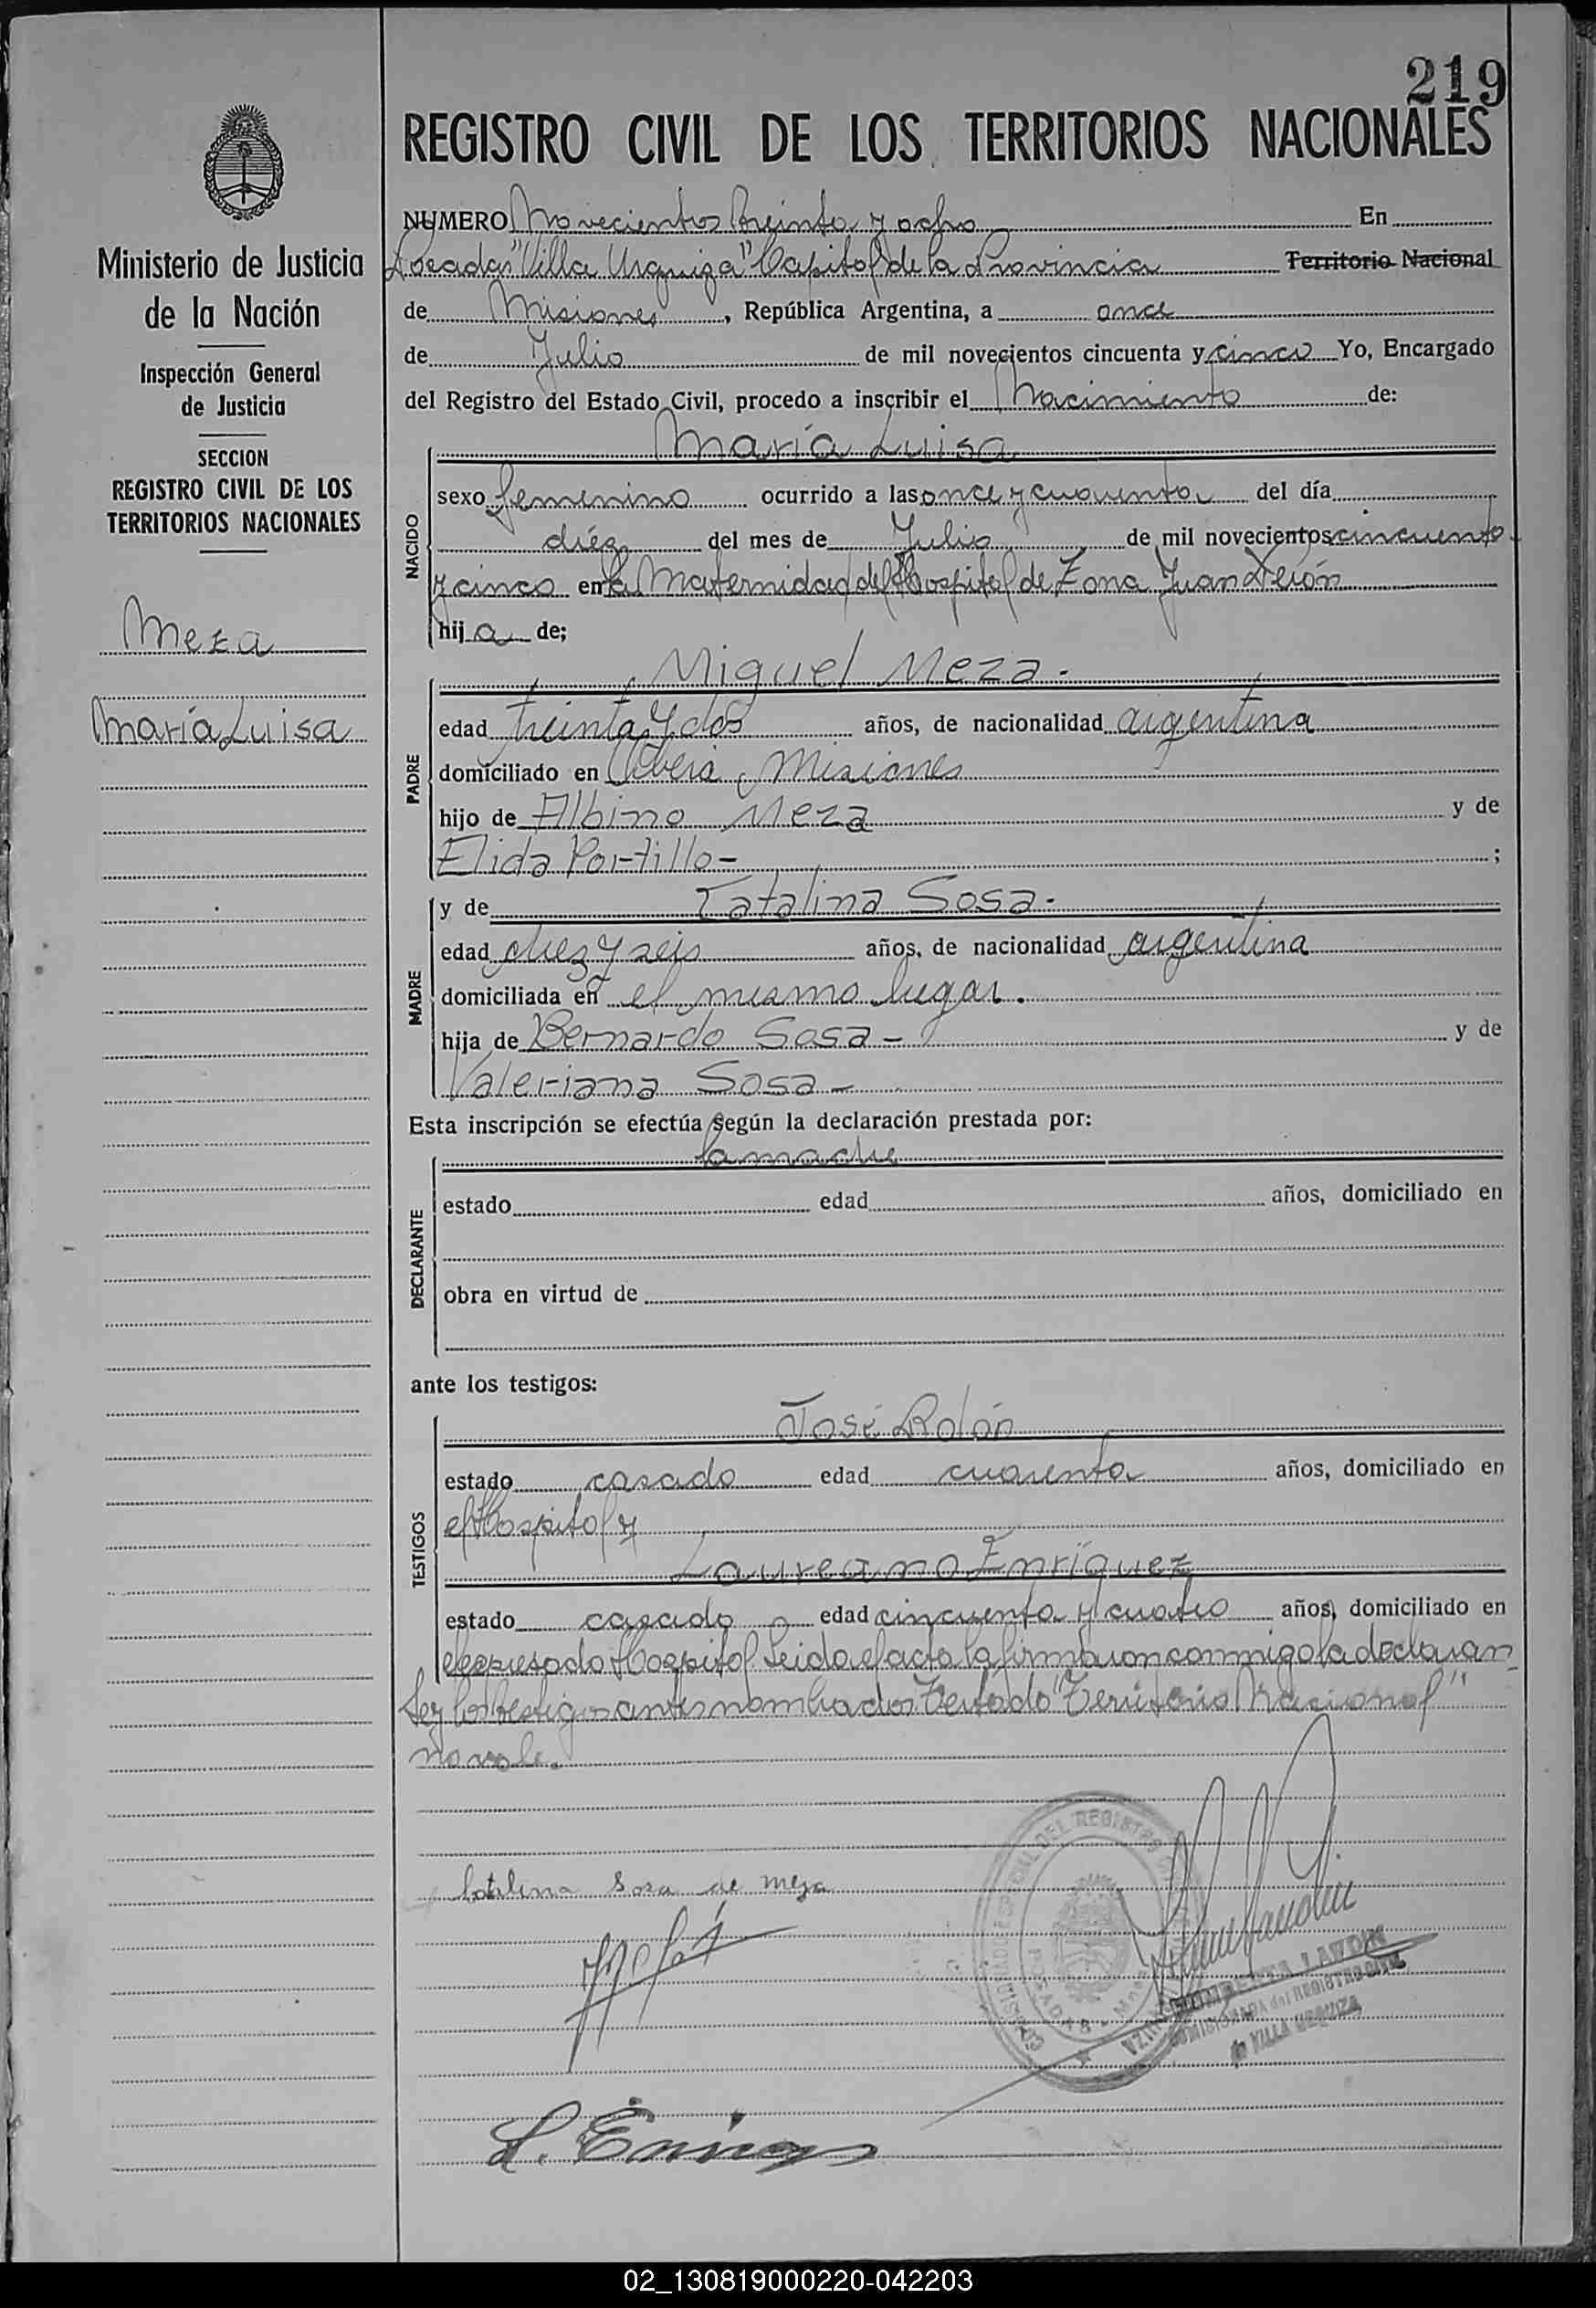 219
REGISTRO CIVIL DE LOS TERRITORIOS NACIONALES
Ministerio de Justicia
de la Nación
Inspección General
de Justicia
SECCION
REGISTRO CIVIL DE LOS
TERRITORIOS NACIONALES
Meza
María Luisa
NUMERO Novecientos treinta y ocho En
Posadas "Villa Urquiza" Capital de la Provincia Territorio Nacional
de Misiones, República Argentina, a once
de Julio de mil novecientos cincuenta y cinco Yo, Encargado
del Registro del Estado Civil, procedo a inscribir el Nacimiento de:
NACIDO
María Luisa
sexo femenino ocurrido a las once y cuarenta del día
diéz del mes de Julio de mil novecientos cincuenta
y cinco en la Maternidad del Hospital de Zona Juan Perón
hija de;
PADRE
Miguel Meza.
edad treinta y dos años, de nacionalidad argentina
domiciliado en Oberá, Misiones
hijo de Albino Meza y de
Elida Portillo- ;
MADRE
y de Catalina Sosa.
edad diez y seis años, de nacionalidad argentina
domiciliada en el mismo lugar.
hija de Bernardo Sosa - y de
Valeriana Sosa -
Esta inscripción se efectúa según la declaración prestada por:
DECLARANTE
la madre
estado edad años, domiciliado en
obra en virtud de
ante los testigos:
TESTIGOS
José Rolón
estado casado edad cuarenta años, domiciliado en
el Hospital y
Laureano Enríquez
estado casado edad cincuenta y cuatro años, domiciliado en
el expresado Hospital Leida el acta la firmaron conmigo la declaran-
te y los testigos antes nombrados Testado "Territorio Nacional"
no vale.
Catalina Sosa de Meza
L. Enriqz
DEL REGISTRO
POSADAS - Mnes
LANDIN
COMISIONADA del REGISTRO CIVIL
de VILLA URQUIZA
02_130819000220-042203